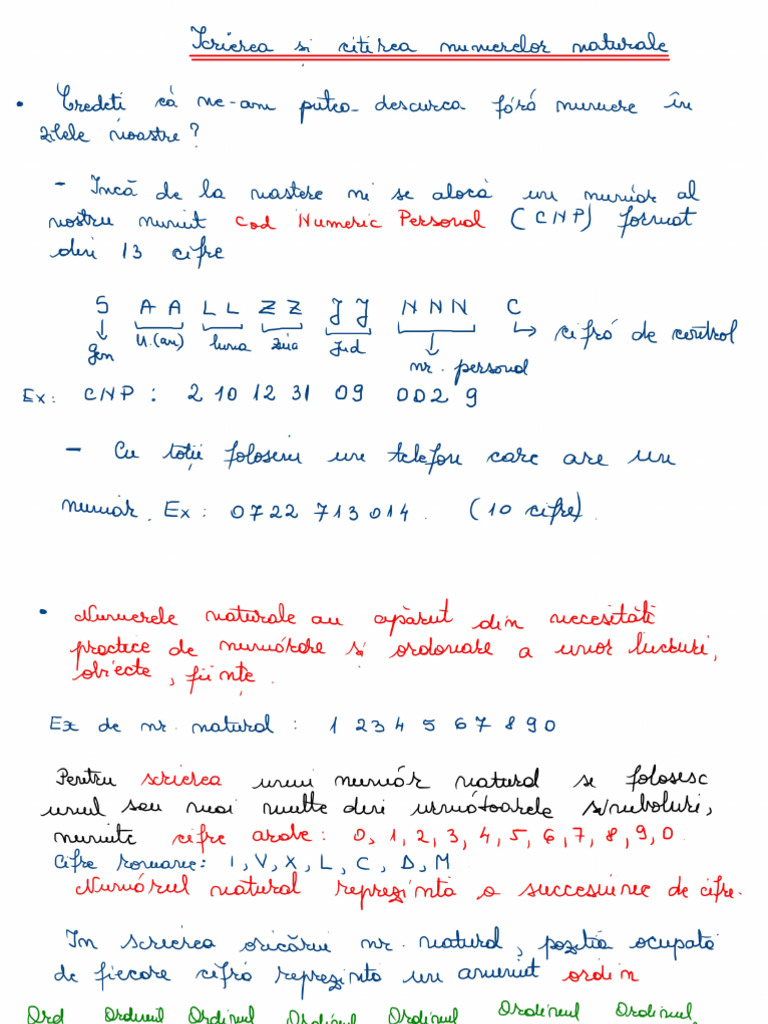 Scrierea si citirea numerelor naturale
• Credeti că ne-am putea descurca fără numere în
zilele noastre?
- Încă de la nastere ni se alocă un număr al
nostru numit Cod Numeric Personal (CNP) format
din 13 cifre
S AA LL ZZ JJ NNN C
gen U.(an) luna ziua Jud nr. personal cifră de control
Ex: CNP: 2 10 12 31 09 002 9
- Cu toții folosim un telefon care are un
număr. Ex: 0722 713 014. (10 cifre).
• Numerele naturale au apărut din necesități
practice de numărare și ordonare a unor lucruri,
obiecte, ființe.
Ex de nr. natural: 1 2 3 4 5 6 7 8 9 0
Pentru scrierea unui număr natural se folosesc
unul sau mai multe din următoarele simboluri,
numite cifre arabe: 0, 1, 2, 3, 4, 5, 6, 7, 8, 9, 0
Cifre romane: I, V, X, L, C, D, M
Numărul natural reprezinta o succesiune de cifre.
In scrierea oricărui nr. natural, pozitia ocupata
de fiecare cifră reprezinta un anumit ordin
Ord Ordinul Ordinul Ordinul Ordinul Ordinul Ordinul